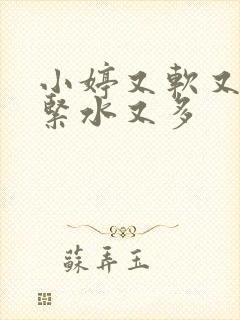 小婷又軟又
緊水又多
蘇弄玉